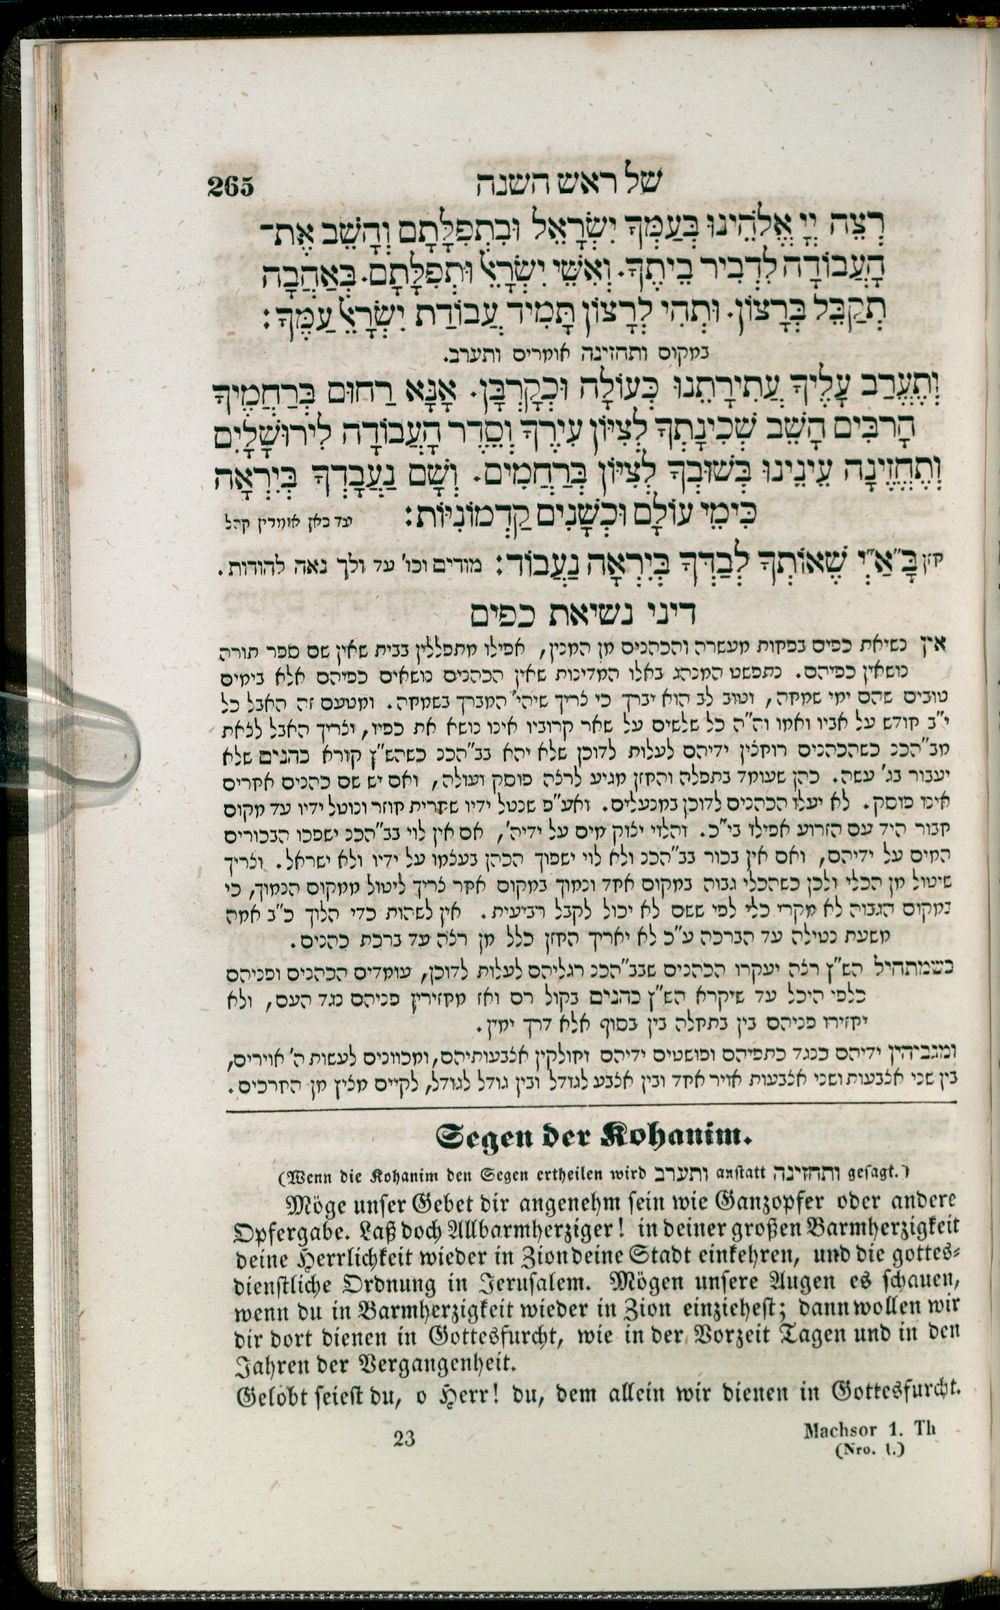 265
של ראש השנה
רְצֵה יְיָ אֱלֹהֵינוּ בְּעַמְּךָ יִשְׂרָאֵל וּבִתְפִלָּתָם וְהָשֵׁב אֶת־
הָעֲבוֹדָה לִדְבִיר בֵּיתֶךָ. וְאִשֵּׁי יִשְׂרָאֵל וּתְפִלָּתָם. בְּאַהֲבָה
תְקַבֵּל בְּרָצוֹן. וּתְהִי לְרָצוֹן תָּמִיד עֲבוֹדַת יִשְׂרָאֵל עַמֶּךָ:
במקום ותחזינה אומרים ותערב.
וְתֶעֱרַב עָלֶיךָ עֲתִירָתֵנוּ כְּעוֹלָה וּכְקָרְבָּן. אָנָּא רַחוּם בְּרַחֲמֶיךָ
הָרַבִּים הָשֵׁב שְׁכִינָתְךָ לְצִיּוֹן עִירֶךָ וְסֵדֶר הָעֲבוֹדָה לִירוּשָׁלָיִם
וְתֶחֱזֶינָה עֵינֵינוּ בְּשׁוּבְךָ לְצִיּוֹן בְּרַחֲמִים. וְשָׁם נַעֲבָדְךָ בְּיִרְאָה
כִּימֵי עוֹלָם וּכְשָׁנִים קַדְמוֹנִיּוֹת: עד כאן אומרין קהל
חזן בָּ״אַ״יְ שֶׁאוֹתְךָ לְבַדְּךָ בְּיִרְאָה נַעֲבוֹד: מודים וכו' עד ולך נאה להודות.
דיני נשיאת כפים
אין נשיאת כפים בפחות מעשרה והכהנים מן המנין, אפילו מתפללין בבית שאין שם ספר תורה
נושאין כפיהם. נתפשט המנהג באלו המדינות שאין הכהנים נושאים כפיהם אלא בימים
טובים שהם ימי שמחה, וטוב לב הוא יברך כי צריך שיהי' המברך בשמחה. ומטעם זה האבל כל
י״ב חודש על אביו ואמו וה״ה כל שלשים על שאר קרוביו אינו נושא את כפיו, וצריך האבל לצאת
מב״הכנ כשהכהנים רוחצין ידיהם לעלות לדוכן שלא יהא בב״הכנ כשהש״ץ קורא כהנים שלא
יעבור בג' עשה. כהן שעומד בתפלה והחזן מגיע לרצה פוסק ועולה, ואם יש שם כהנים אחרים
אינו פוסק. לא יעלו הכהנים לדוכן במנעלים. ואע״פ שנטל ידיו שחרית חוזר ונוטל ידיו עד מקום
חבור היד עם הזרוע אפילו בי״כ. והלוי יצוק מים על ידיה', אם אין לוי בב״הכנ ישפכו הבכורים
המים על ידיהם, ואם אין בכור בב״הכנ ולא לוי ישפוך הכהן בעצמו על ידיו ולא ישראל. וצריך
שיטול מן הכלי ולכן כשהכלי גבוה במקום אחד ונמוך במקום אחר צריך ליטול ממקום הנמוך, כי
במקום הגבוה לא מקרי כלי לפי ששם לא יכול לקבל רביעית. אין לשהות כדי הלוך כ״ב אמה
משעת נטילה עד הברכה ע״כ לא יאריך החזן כלל מן רצה עד ברכת כהנים.
כשמתחיל הש״ץ רצה יעקרו הכהנים שבב״הכנ רגליהם לעלות לדוכן, עומדים הכהנים ופניהם
כלפי היכל עד שיקרא הש״ץ כהנים בקול רם ואז מחזירין פניהם כנגד העם, ולא
יחזירו פניהם בין בתחלה בין בסוף אלא דרך ימין.
ומגביהין ידיהם כנגד כתפיהם ופושטים ידיהם וחולקין אצבעותיהם, ומכוונים לעשות ה' אוירים,
בין שני אצבעות ושני אצבעות אויר אחד ובין אצבע לגודל ובין גודל לגודל, לקיים מציץ מן החרכים.
Segen der Kohanim.
(Wenn die Kohanim den Segen ertheilen wird ותערב anstatt ותחזינה gesagt.)
Möge unser Gebet dir angenehm sein wie Ganzopfer oder andere
Opfergabe. Laß doch Allbarmherziger! in deiner großen Barmherzigkeit
deine Herrlichkeit wieder in Zion deine Stadt einkehren, und die gottes-
dienstliche Ordnung in Jerusalem. Mögen unsere Augen es schauen,
wenn du in Barmherzigkeit wieder in Zion einziehest; dann wollen wir
dir dort dienen in Gottesfurcht, wie in der Vorzeit Tagen und in den
Jahren der Vergangenheit.
Gelobt seiest du, o Herr! du, dem allein wir dienen in Gottesfurcht.
23
Machsor 1. Th
(Nro. 1.)